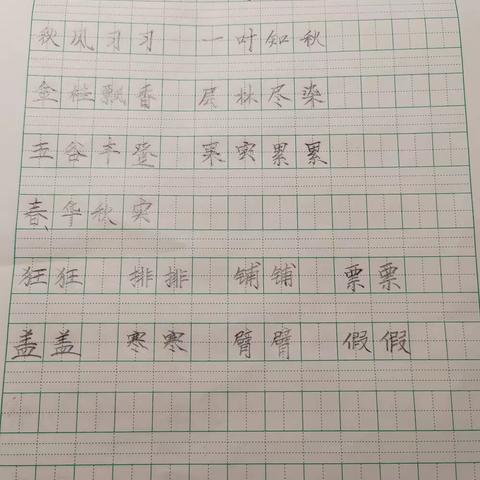 秋风习习 一叶知秋
金桂飘香 层林尽染
五谷丰登 果实累累
春华秋实
狂狂 排排 铺铺 票票
盖盖 寒寒 臂臂 假假